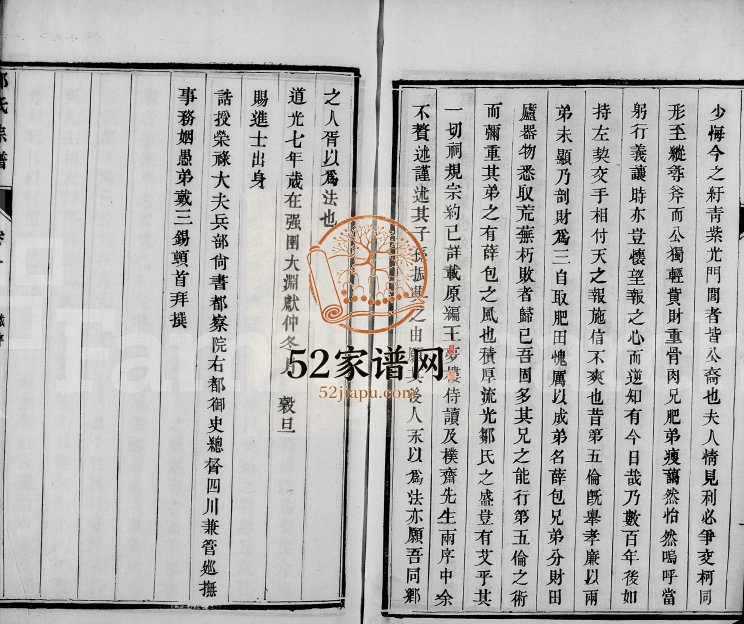 少悔今之紆青紫光門閭者皆公裔也夫人情見利必爭交柯同
形至縱尋斧而公獨輕貲財重骨肉兄肥弟瘦藹然怡然嗚呼當
躬行義讓時亦豈懷望報之心而逆知有今日哉乃數百年後如
持左契交手相付天之報施信不爽也昔第五倫旣舉孝廉以兩
弟未顯乃剖財爲三自取肥田愧厲以成弟名薛包兄弟分財田
廬器物悉取荒蕪朽敗者歸已吾固多其兄之能行第五倫之術
而彌重其弟之有薛包之風也積厚流光鄒氏之盛豈有艾乎其
一切祠規宗約已詳載原編王夢樓侍讀及樸齋先生兩序中余
不贅述謹述其子孫振之由後人永以爲法亦願吾同鄉
之人胥以爲法也
道光七年歲在强圉大淵獻仲冬月 穀旦
賜進士出身
誥授榮祿大夫兵部尙書都察院右都御史總督四川兼管廵撫
事務姻愚弟戴三錫頓首拜撰
氏宗譜
52家谱网
52jiapu.com